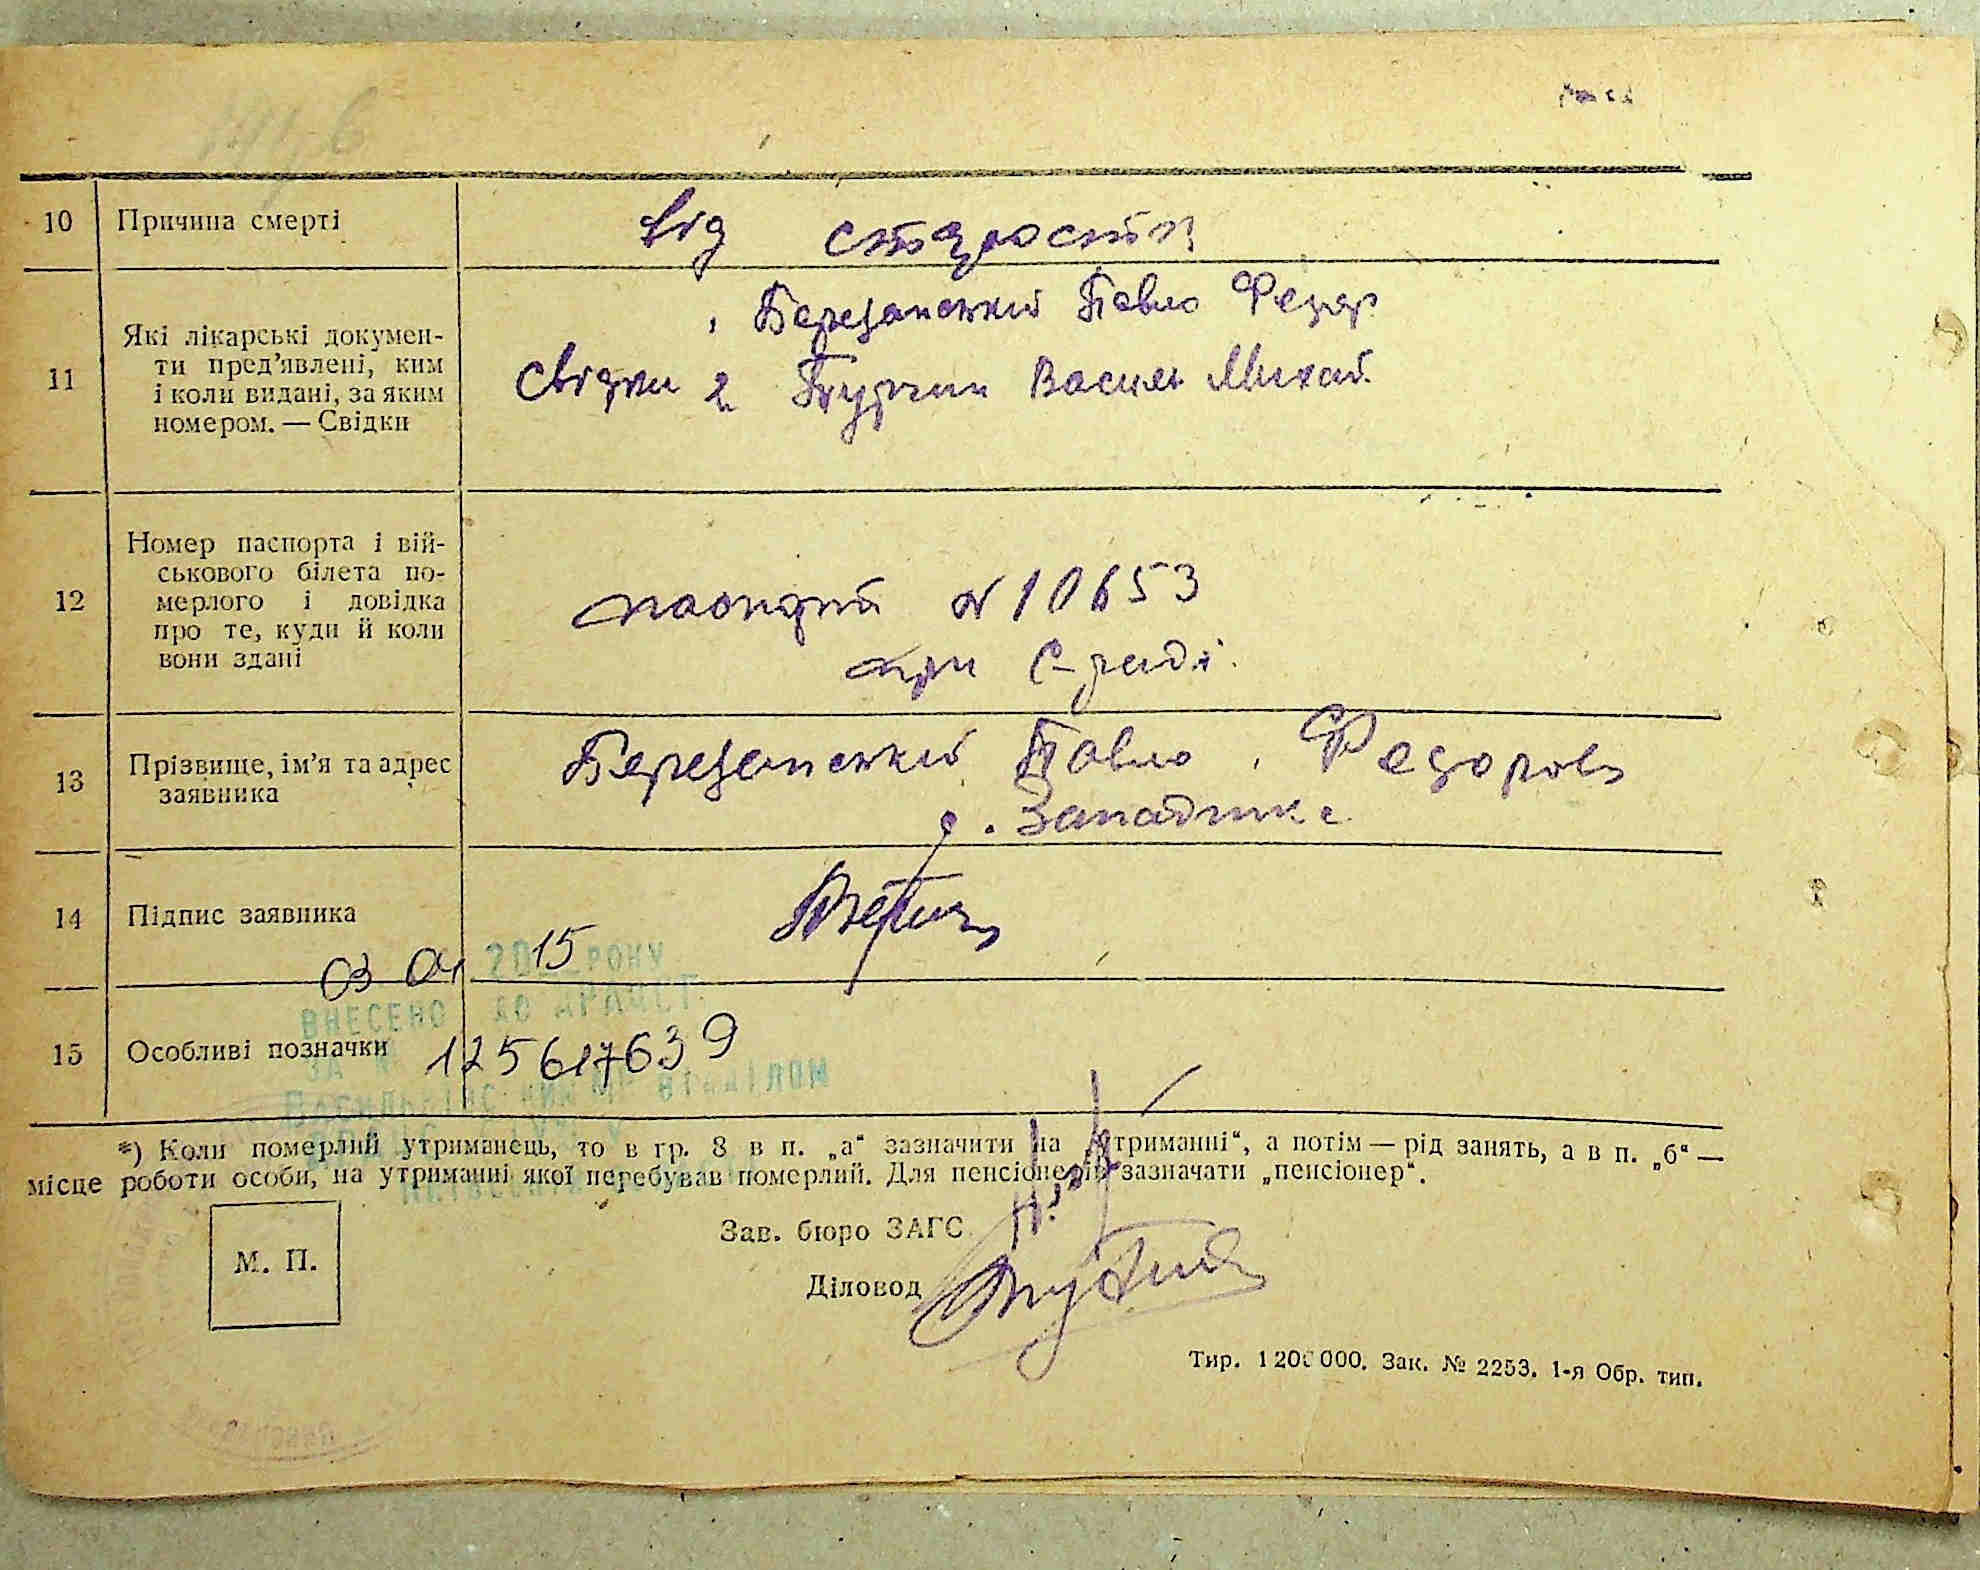 10 Причина смерті від старости
11 Які лікарські докумен-
ти пред’явлені, ким
і коли видані, за яким
номером. — Свідки
Березанський Павло Федор
свідки 2 Василь Михай.
12 Номер паспорта і вій-
ськового білета по-
мерлого і довідка
про те, куди й коли
вони здані
паспорт № 10653
при С-раді.
13 Прізвище, ім’я та адрес
заявника
Березанський Павло Федоров
с. Западинка
14 Підпис заявника
03 04 2015 РОКУ
ВНЕСЕНО ДО ДРАЦСГ
15 Особливі позначки 125617639
ЗА №
ВІДДІЛОМ
*) Коли померлий утриманець, то в гр. 8 в п. „а“ зазначити на утриманні“, а потім — рід занять, а в п. „б“ —
місце роботи особи, на утриманні якої перебував померлий. Для пенсіонерів зазначати „пенсіонер“.
Зав. бюро ЗАГС
М. П.
Діловод
Тир. 1 200 000. Зак. № 2253. 1-я Обр. тип.